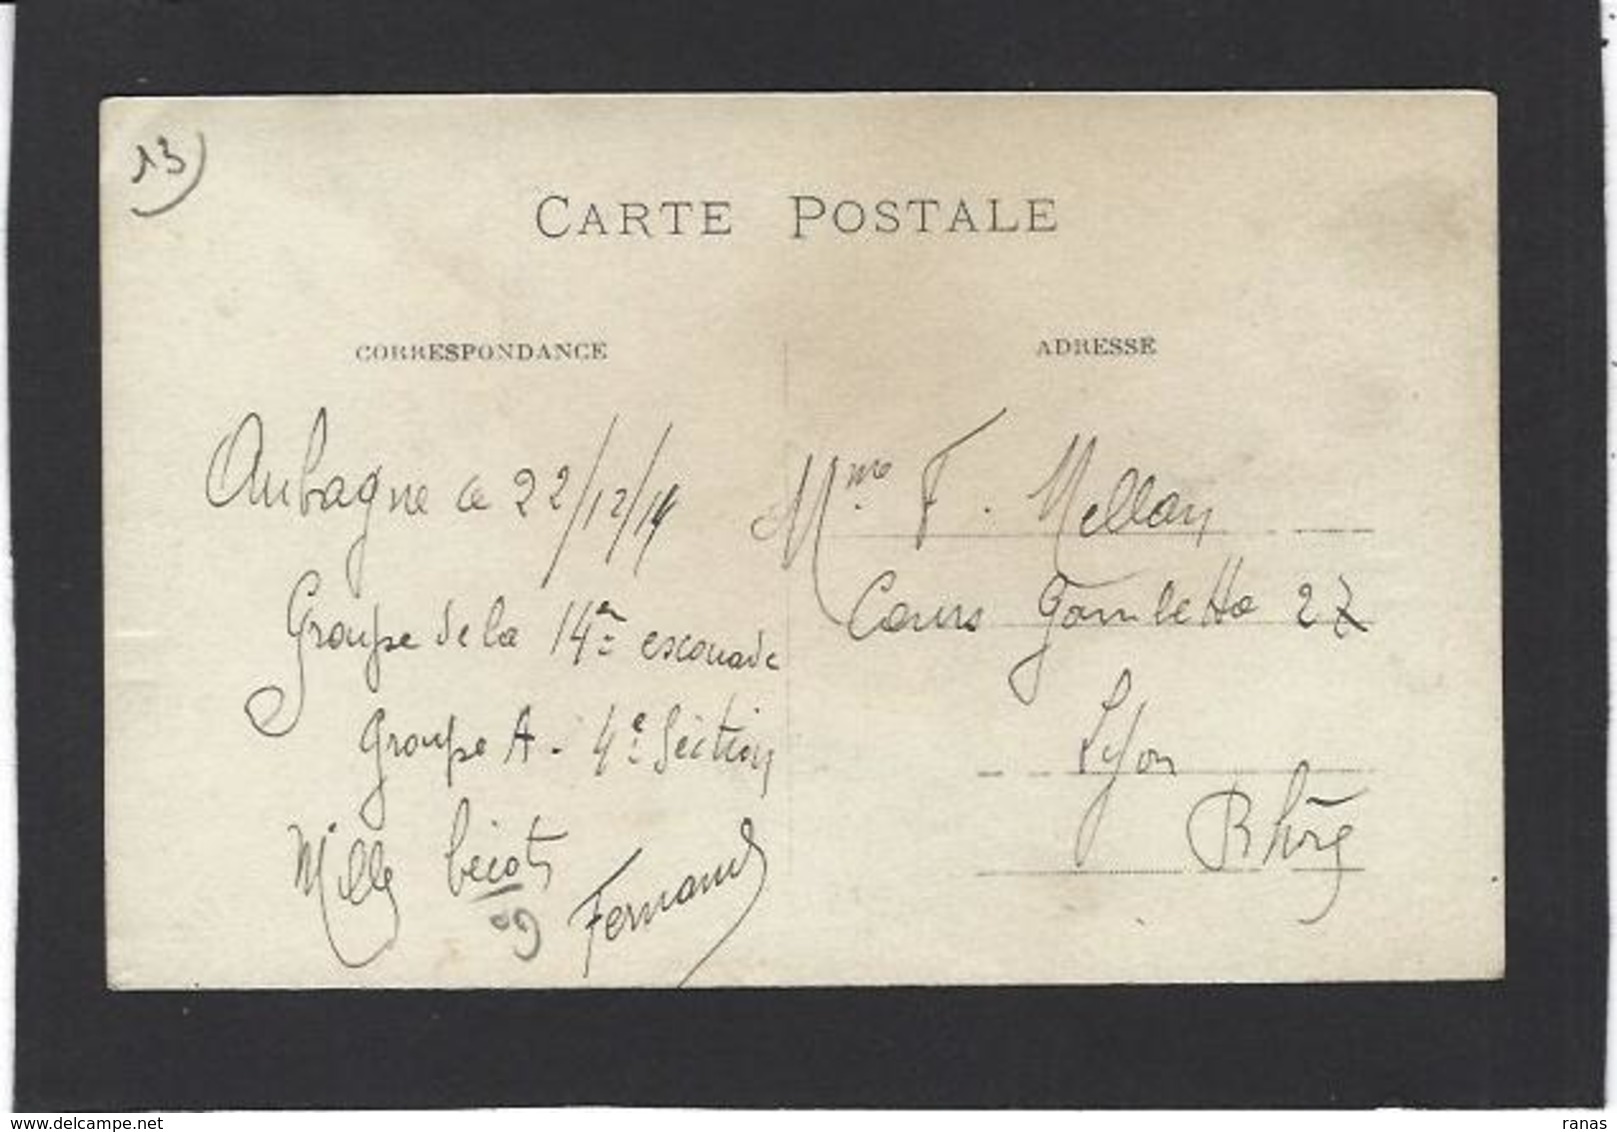 13
CARTE POSTALE
CORRESPONDANCE
Aubagne ce 22/12/14
Groupe de la 14me escouade
Groupe A - 4e Section
Mille bécots
Fernand
ADRESSE
Mme F. Mellan
Cours Gambetta 27
Lyon
Rhône
www.delcampe.net
ranas